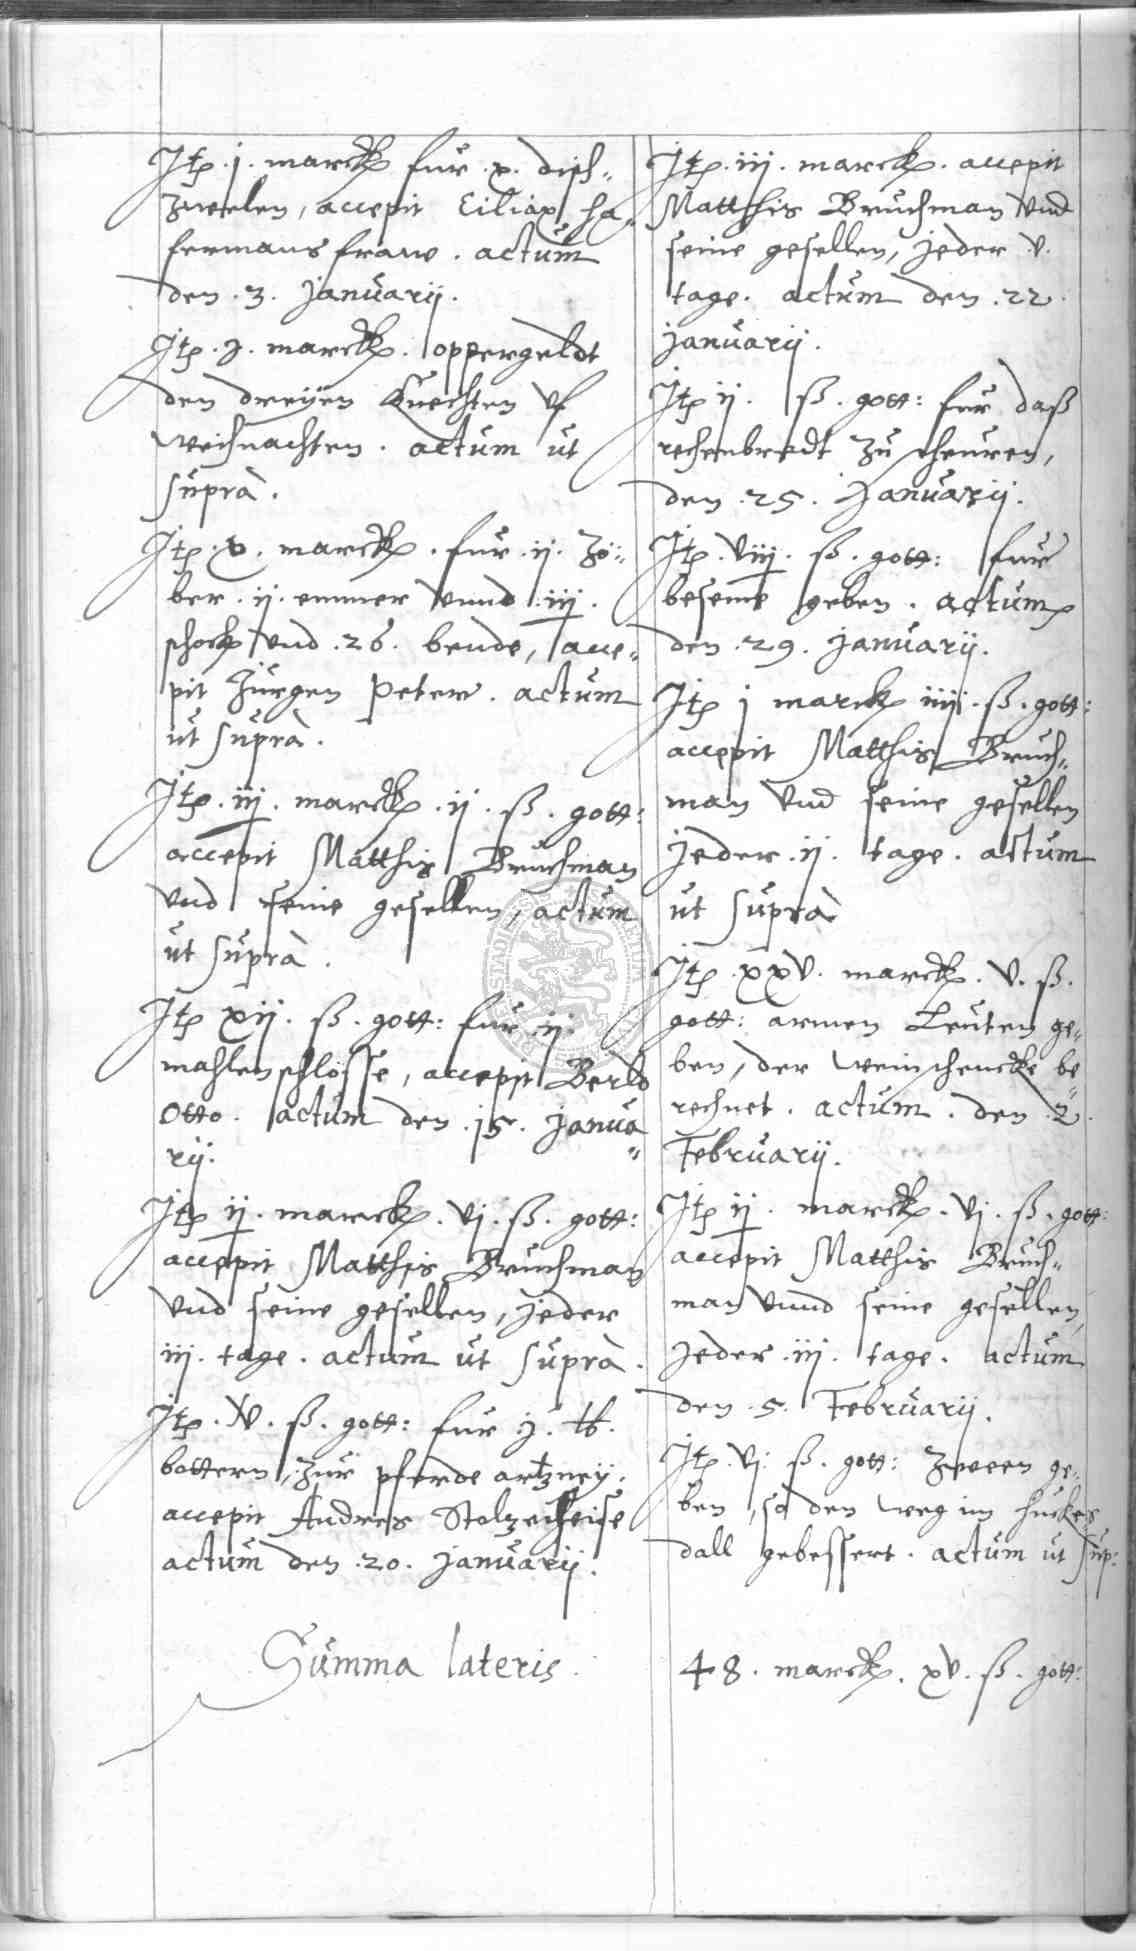 Jtp. j. marck fur .x. disch¬
zwelen, accepit Ciliax ha¬
fermans fraw. actum
den .3. Januarij.
Jtp. j. marck. oppergeldt
den dreÿen Knechten vf
Weihnachten. actum ut
supra.
Jtp. v. marck. fur .ij. Zö¬
ber .ij. emmer vnnd .iij.
schock vnd .26. bende, acce¬
pit Jurgen Peter. actum
ut supra.
Jtp. iij. marck .ij. ß. gott:
accepit Matthis Bruchman
vnd seine gesellen, actum
ut supra.
Jtp xij. ß. gott: fur ij.
mahlenschlösse, accepit Berld
Otto. actum den .15. Janua¬
rij.
Jtp ij. marck. vj. ß. gott:
accepit Matthis Bruchman
vnd seine gesellen, jeder
iij. tage. actum ut supra.
Jtp. ß. gott: fur j. lb.
bottern, zur pferde artzneÿ.
accepit Andres Stolzeiheise
actum den .20. Januarij.
Summa lateris.
Jtp. iij. marck. accepit
Matthis Bruchman vnd
seine gesellen, jeder v.
tage. actum den .22.
Januarij.
Jtp ij. ß. gott: fur daß
rechenbredt zu scheuren,
den .25. Januarij.
Jtp. viij. ß. gott: fur
beseme geben. actum
den .29. Januarij.
Jtp j marck iiij. ß. gott:
accepit Matthis Bruch¬
man vnd seine gesellen
jeder .ij. tage. actum
ut supra
Jtp. xxv. marck. v. ß.
gott: armen Leuten ge¬
ben, der Weinschencke be¬
rechnet. actum. den .2.
Februarij.
Jtp ij. marck. vj. ß. gott:
accepit Matthis Bruch¬
man vnnd seine gesellen,
jeder .iij. tage. actum
den .5. Februarij.
Jtp. vj. ß. gott: zween ge¬
ben, so den weg im huckes
dall gebessert. actum ut sup:
48. marck. xv. ß. gott: